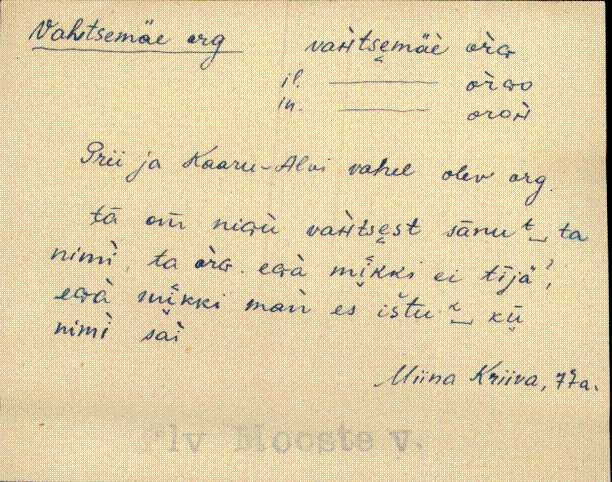 Vahtsemäe org
vaɦtsemäè òrG
il. ——— òrGo
in. ——— oroɦ
Prii ja Kaaru-Alvi vahel olev org.
tā om̄ niGù vaɦtsest sānu t‿ta
nimì, ta òrG. eGà mikki ei tijä ˀ,
eGà mikki mań es ištu ˀ‿kù
nimì sai
Miina Kriiva, 77a.
Plv Mooste v.